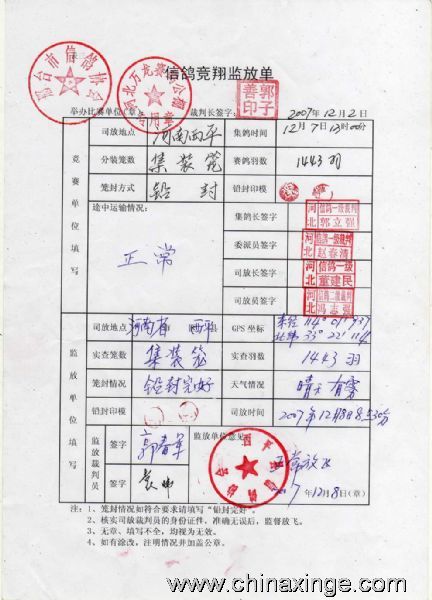 信鸽竞翔监放单
邢台市信鸽协会
郭子善印
举办比赛单位（章）： 裁判长签字： 2007年12月2日
竞赛单位填写
司放地点 河南西平 集鸽时间 12月7日13时00分
分装笼数 集装笼 赛鸽羽数 1443羽
笼封方式 铅封 铅封印模
途中运输情况： 正常
集鸽长签字 河北 信鸽一级裁判 郭立强
委派员签字 河北 信鸽一级裁判 赵春清
司放长签字 河北 信鸽一级 董建民
司放员签字 河北 信鸽二级裁判 冯志强
监放单位填写
司放地点 河南省 西平县 GPS坐标 东经114°01′937 北纬33°22′114
实查笼数 集装笼 实查羽数 1443羽
笼封情况 铅封完好 天气情况 晴天 有雾
铅封印模 司放时间 2007年12月8日8点30分
监放裁判员
签字 郭春军
签字
监放单位意见： 正常放飞
2007年12月8日（章）
注：1、笼封情况如符合要求请填写“铅封完好”。
2、核实司放裁判员的身份证件，准确无误后，监督放飞。
3、无章、填写不全，均视为无效。
4、如有涂改，注明情况并加盖公章。
www.chinaxinge.com